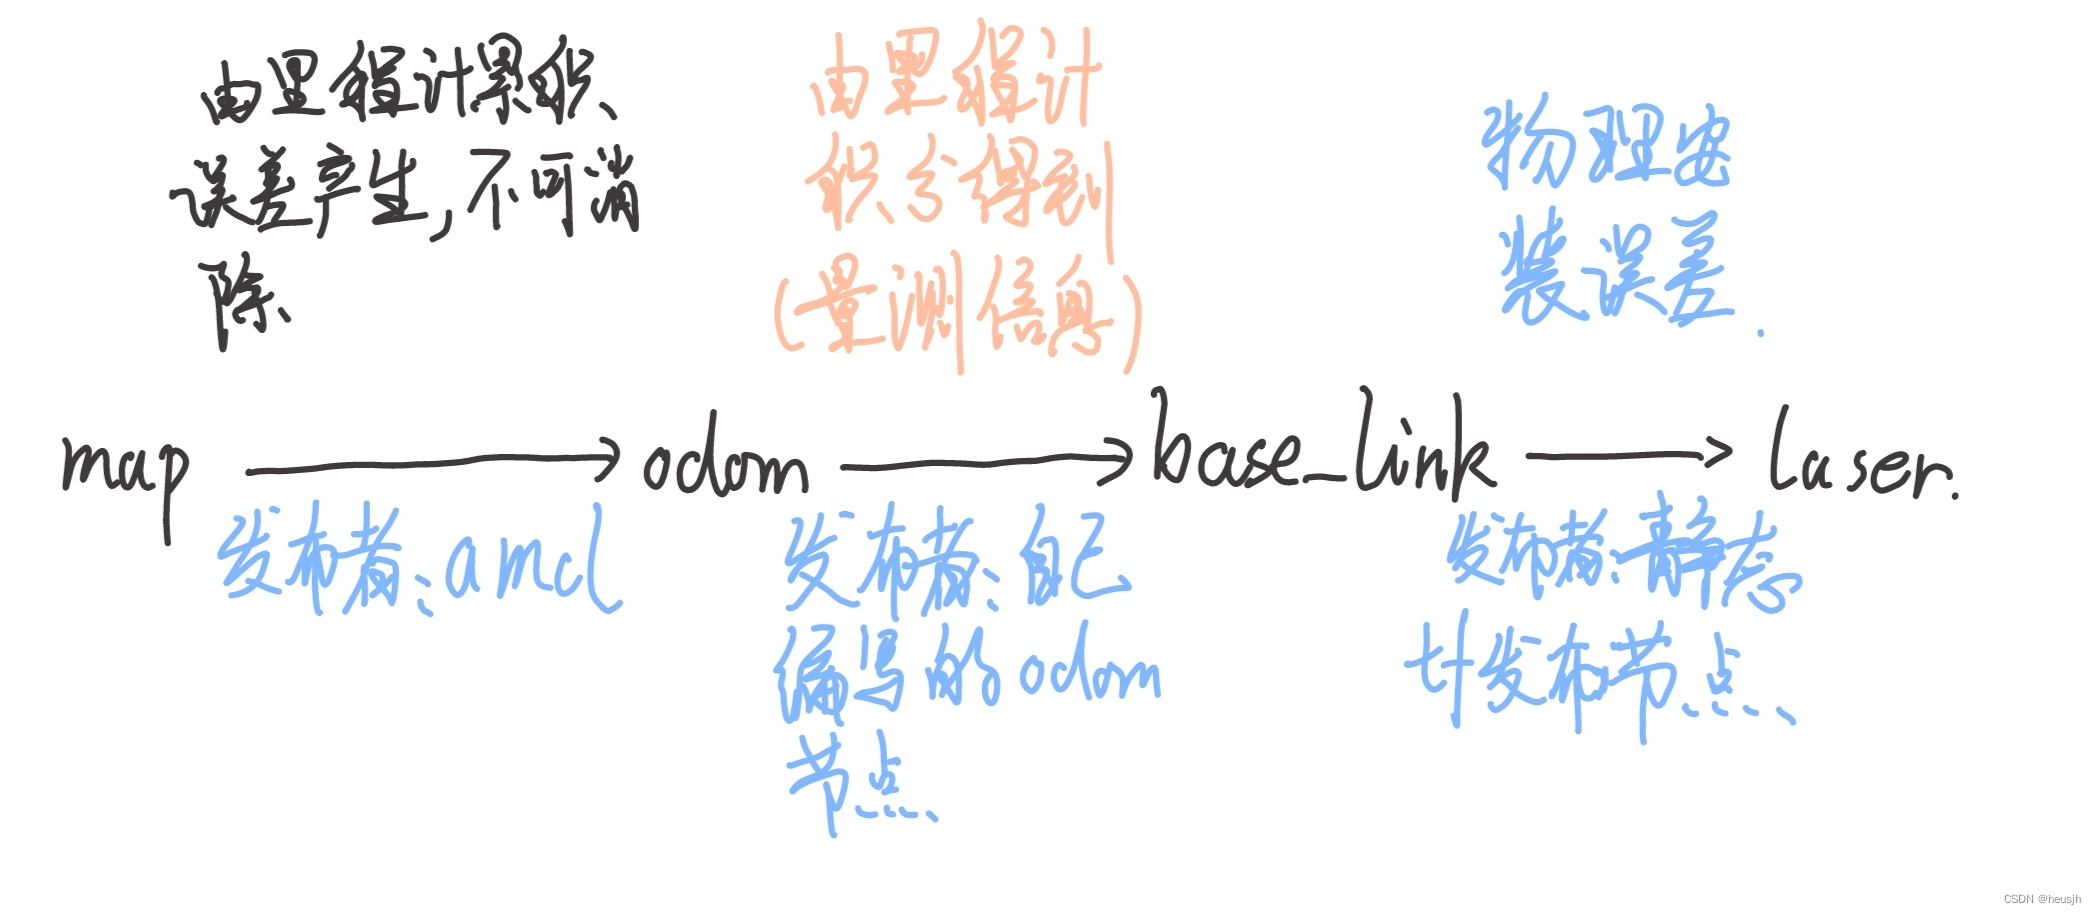 由里程计累积
误差产生，不可消
除
由里程计
积分得到
(量测信息)
物理安
装误差.
map → odom → base_link → laser.
发布者:amcl
发布者:自己
编写的odom
节点
发布者:静态
tf发布节点
CSDN @heusjh